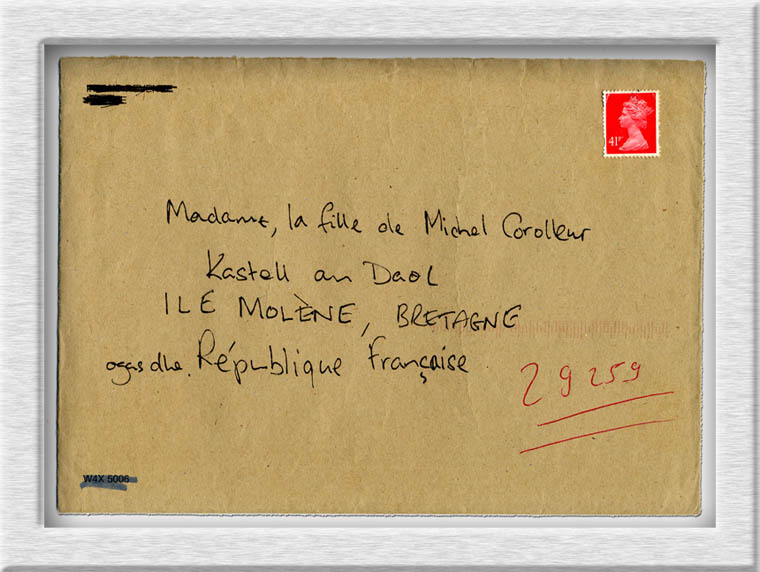 41P
Madame, la fille de Michel Corolleur
Kastell an Daol
ILE MOLÈNE, BRETAGNE
ogas dhe. République française
29259
W4X 5006